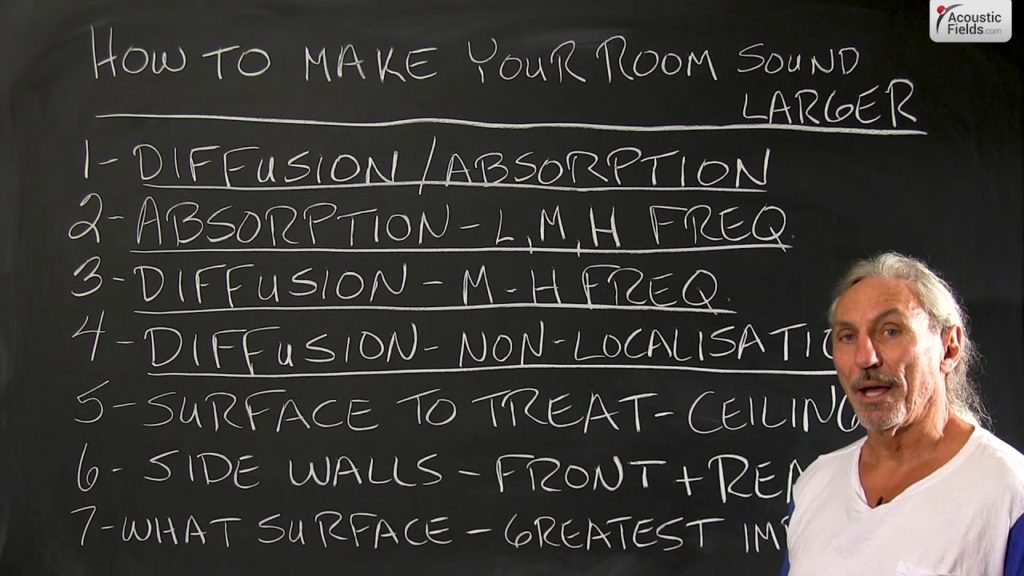 Acoustic
Fields.com
HOW TO MAKE YOUR ROOM SOUND
LARGER
1- DIFFUSION / ABSORPTION
2- ABSORPTION - L, M, H FREQ.
3- DIFFUSION - M - H FREQ.
4- DIFFUSION - NON-LOCALISATIO
5- SURFACE TO TREAT - CEILING
6- SIDE WALLS - FRONT + REA
7- WHAT SURFACE - GREATEST IMP